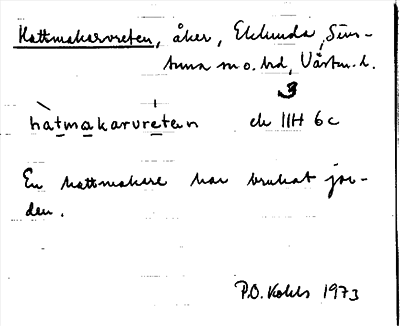 Hattmakarvreten, åker, Eklunda, Simtuna sn o. hd, Västm. l.
3
hatmakarvretan ek 11H 6c
En hattmakare har brukat jor-
den.
P.O. Kohls 1973